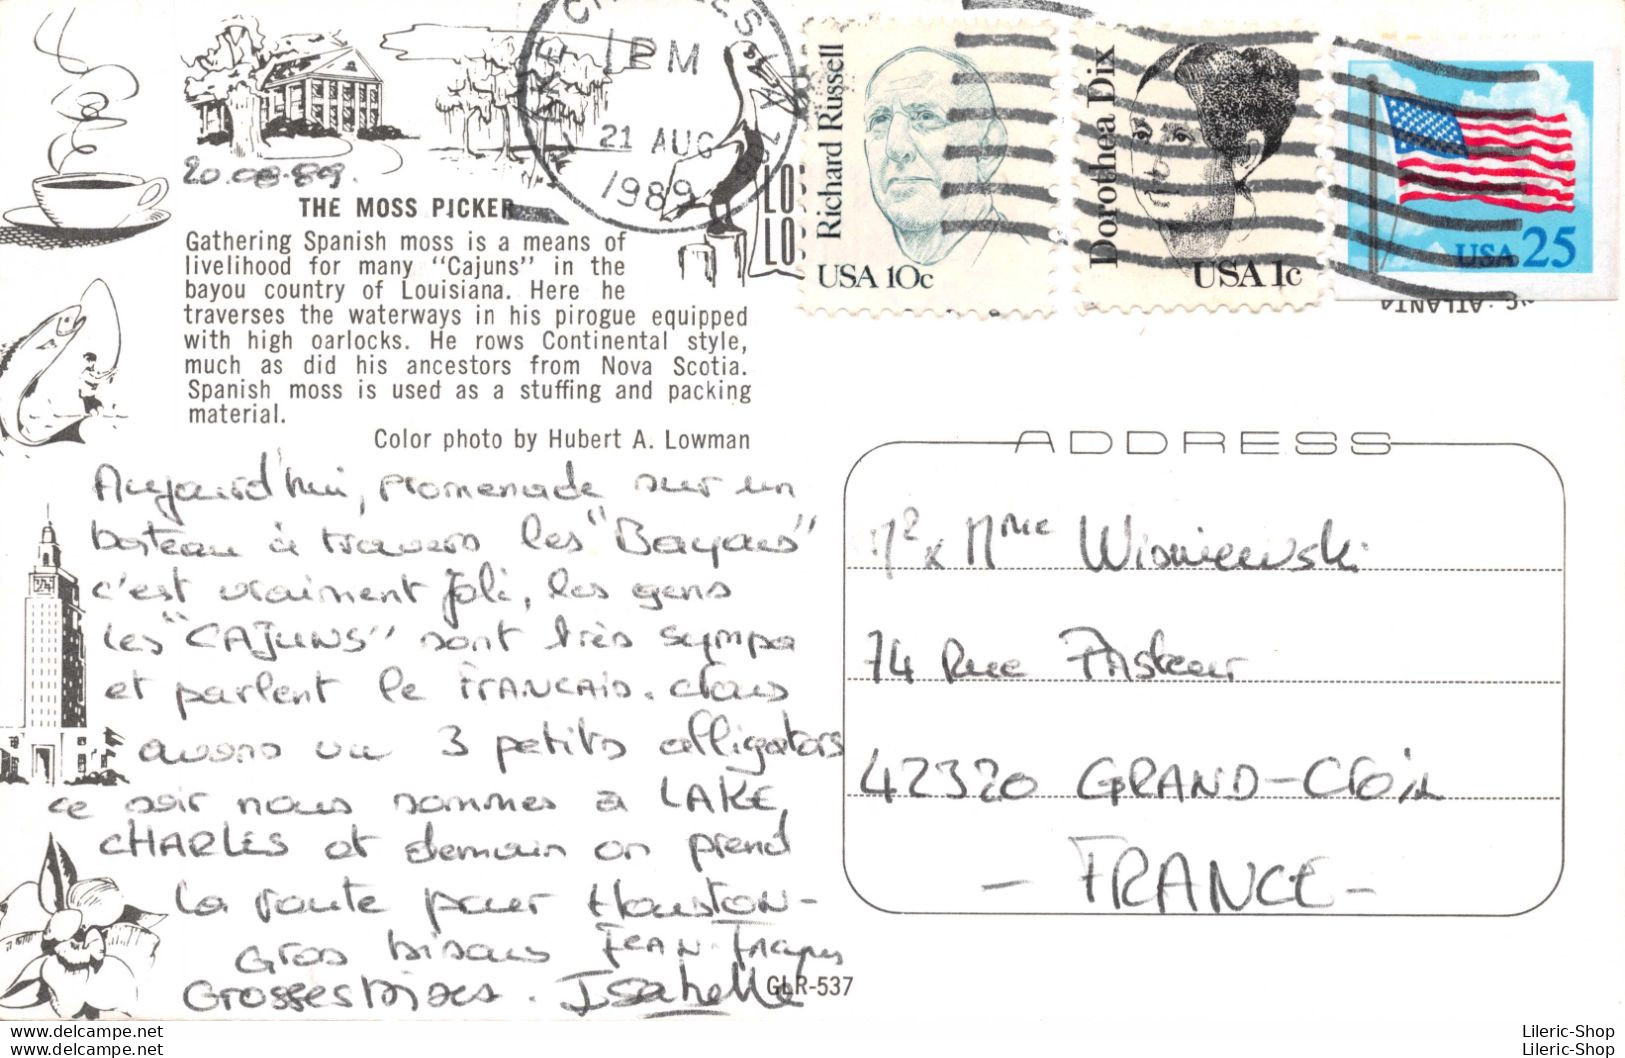 LAKE CHARLES, LA
PM
21 AUG
1989
LO
LO
Richard Russell
USA 10c
Dorothea Dix
USA 1c
USA 25
ATLANTA
20.08.89.
THE MOSS PICKER
Gathering Spanish moss is a means of
livelihood for many "Cajuns" in the
bayou country of Louisiana. Here he
traverses the waterways in his pirogue equipped
with high oarlocks. He rows Continental style,
much as did his ancestors from Nova Scotia.
Spanish moss is used as a stuffing and packing
material.
Color photo by Hubert A. Lowman
Aujourd'hui, promenade sur un
bateau à travers les "Bayous"
c'est vraiment joli, les gens
les "CAJUNS" sont très sympa
et parlent le FRANCAIS. Nous
avons vu 3 petits alligators
ce soir nous sommes à LAKE
CHARLES et demain on prend
la route pour HOUSTON-
Gros bisous JEAN-Jacques
Grosses bises. Isabelle
GLR-537
ADDRESS
Mr & Mme Wisniewski
74 Rue PAsteur
42320 GRAND-Croix
- FRANCE -
delcampe.net
delcampe.net
Lileric-Shop
Lileric-Shop